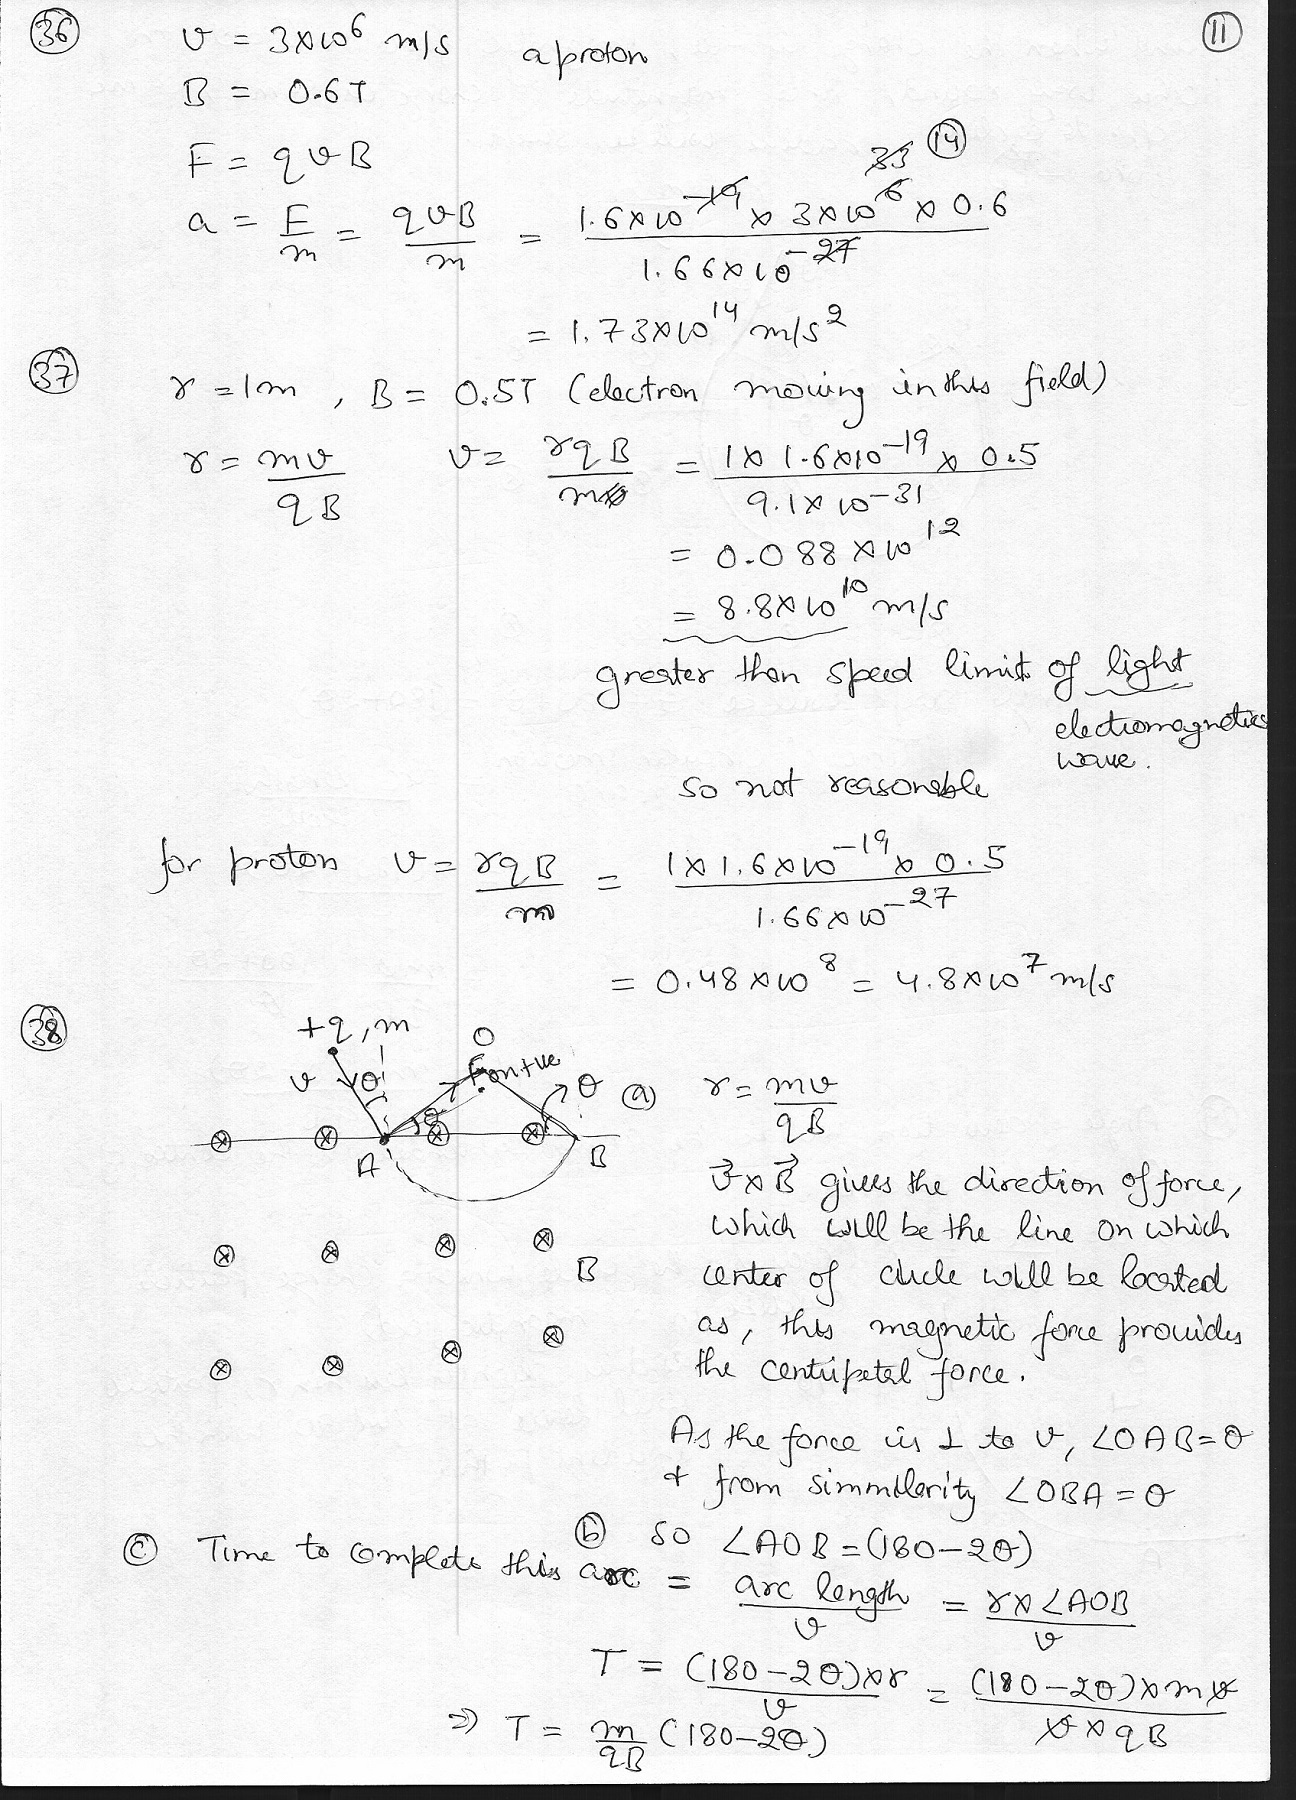 36 v = 3×10⁶ m/s a proton 11
B = 0.6T
F = qvB
33 14
a = F/m = qvB/m = 1.6×10⁻¹⁹ × 3×10⁶ × 0.6 / 1.66×10⁻²⁷
= 1.73×10¹⁴ m/s²
37 r = 1m , B = 0.5T (electron moving in this field)
r = mv/qB v = rqB/m = 1× 1.6×10⁻¹⁹ × 0.5 / 9.1×10⁻³¹
= 0.088 ×10¹²
= 8.8×10¹⁰ m/s
greater than speed limit of light
electromagnetics
wave.
so not reasonable
for proton v = rqB/m = 1×1.6×10⁻¹⁹ × 0.5 / 1.66×10⁻²⁷
= 0.48×10⁸ = 4.8×10⁷ m/s
38 +q, m O
v θ F on +ve θ
θ
A B
B
(a) r = mv/qB
v⃗×B⃗ gives the direction of force,
which will be the line on which
center of circle will be located
as, this magnetic force provides
the centripetal force.
As the force is ⊥ to v, ∠OAB = θ
+ from simmilarity ∠OBA = θ
(b) so ∠AOB = (180−2θ)
(c) Time to complete this arc = arc length/v = r×∠AOB/v
T = (180−2θ)×r/v = (180−2θ)×mv/v×qB
⇒ T = m/qB (180−2θ)